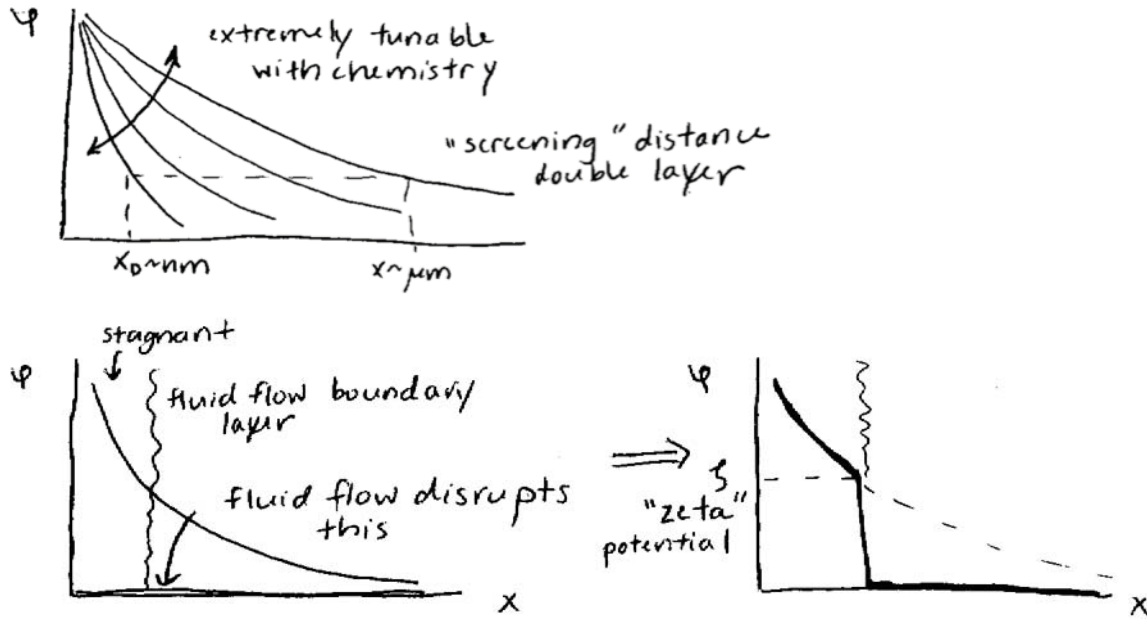 φ
extremely tunable
with chemistry
"screening" distance
double layer
x_D~nm
x~μm
stagnant
φ
fluid flow boundary
layer
fluid flow disrupts
this
x
φ
ζ
"zeta"
potential
x